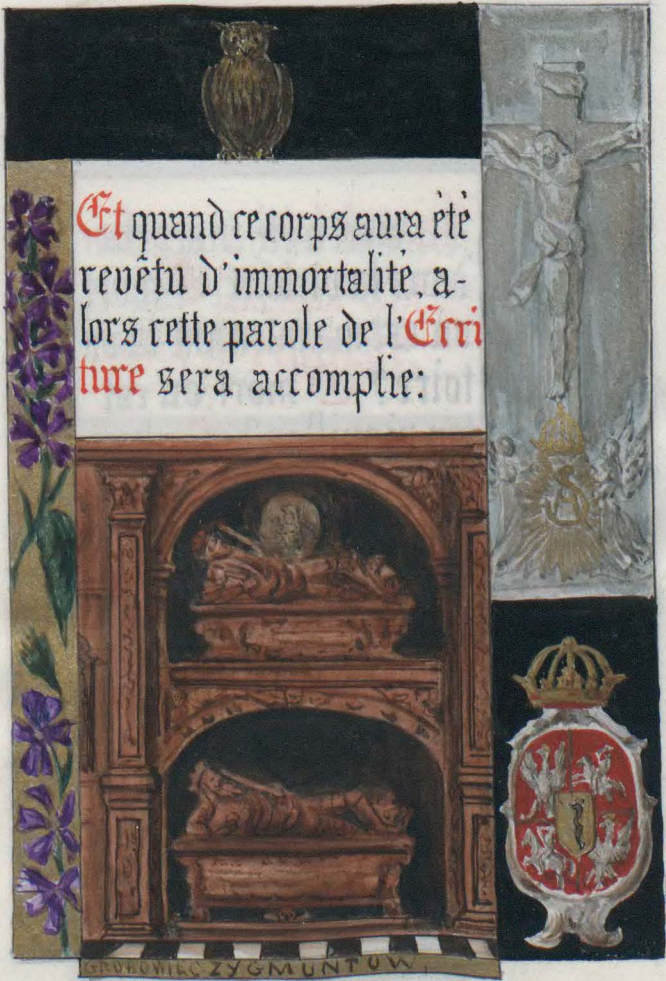 Et quand ce corps aura èté
revêtu d'immortalité, a-
lors cette parole de l'Ecri
ture sera accomplie:
GROBOWIEC ZYGMUNTÓW